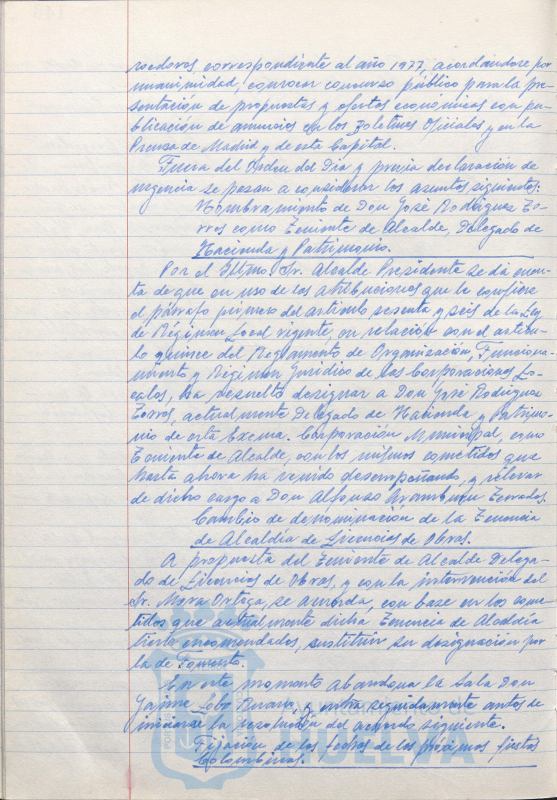 corredores, correspondiente al año 1977, acordándose por
unanimidad, convocar concurso público para la pre-
sentación de propuestas y ofertas económicas con pu-
blicación de anuncios en los Boletines Oficiales y en la
Prensa de Madrid y de esta Capital.
Fuera del Orden del Dia y previa declaración de
urgencia se pasan a considerar los asuntos siguientes:
Nombramiento de Don José Rodriguez Zo-
rros como Teniente de Alcalde, Delegado de
Hacienda y Patrimonio.
Por el Iltmo. Sr. Alcalde Presidente se da cuen-
ta de que en uso de las atribuciones que le confiere
el párrafo primero del artículo sesenta y seis de la Ley
de Régimen Local vigente, en relación con el artícu-
lo quince del Reglamento de Organización, Funciona-
miento y Régimen Jurídico de las Corporaciones Lo-
cales, ha resuelto designar a Don José Rodriguez
Zorros, actualmente Delegado de Hacienda y Patrimo-
nio de esta Excma. Corporación Municipal, como
Teniente de Alcalde, con los mismos cometidos que
hasta ahora ha venido desempeñando, y relevar
de dicho cargo a Don Alfonso Aramburu Terrades.
Cambio de denominación de la Tenencia
de Alcaldía de Licencias de Obras.
A propuesta del Teniente de Alcalde Delega-
do de Licencias de Obras, y con la intervención del
Sr. Mora Ortega, se acuerda, con base en los come-
tidos que actualmente dicha Tenencia de Alcaldía
tiene encomendados, sustituir su designación por
la de Fomento.
En este momento abandona la Sala Don
Jaime Lobo y entra seguidamente antes de
iniciarse la resolución del acuerdo siguiente.
Fijación de las fechas de las próximas fiestas
Colombinas.
HUELVA